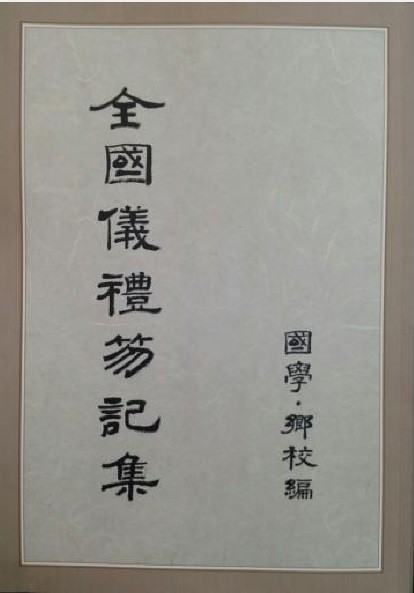 全國儀禮笏記集
國學·鄕校編